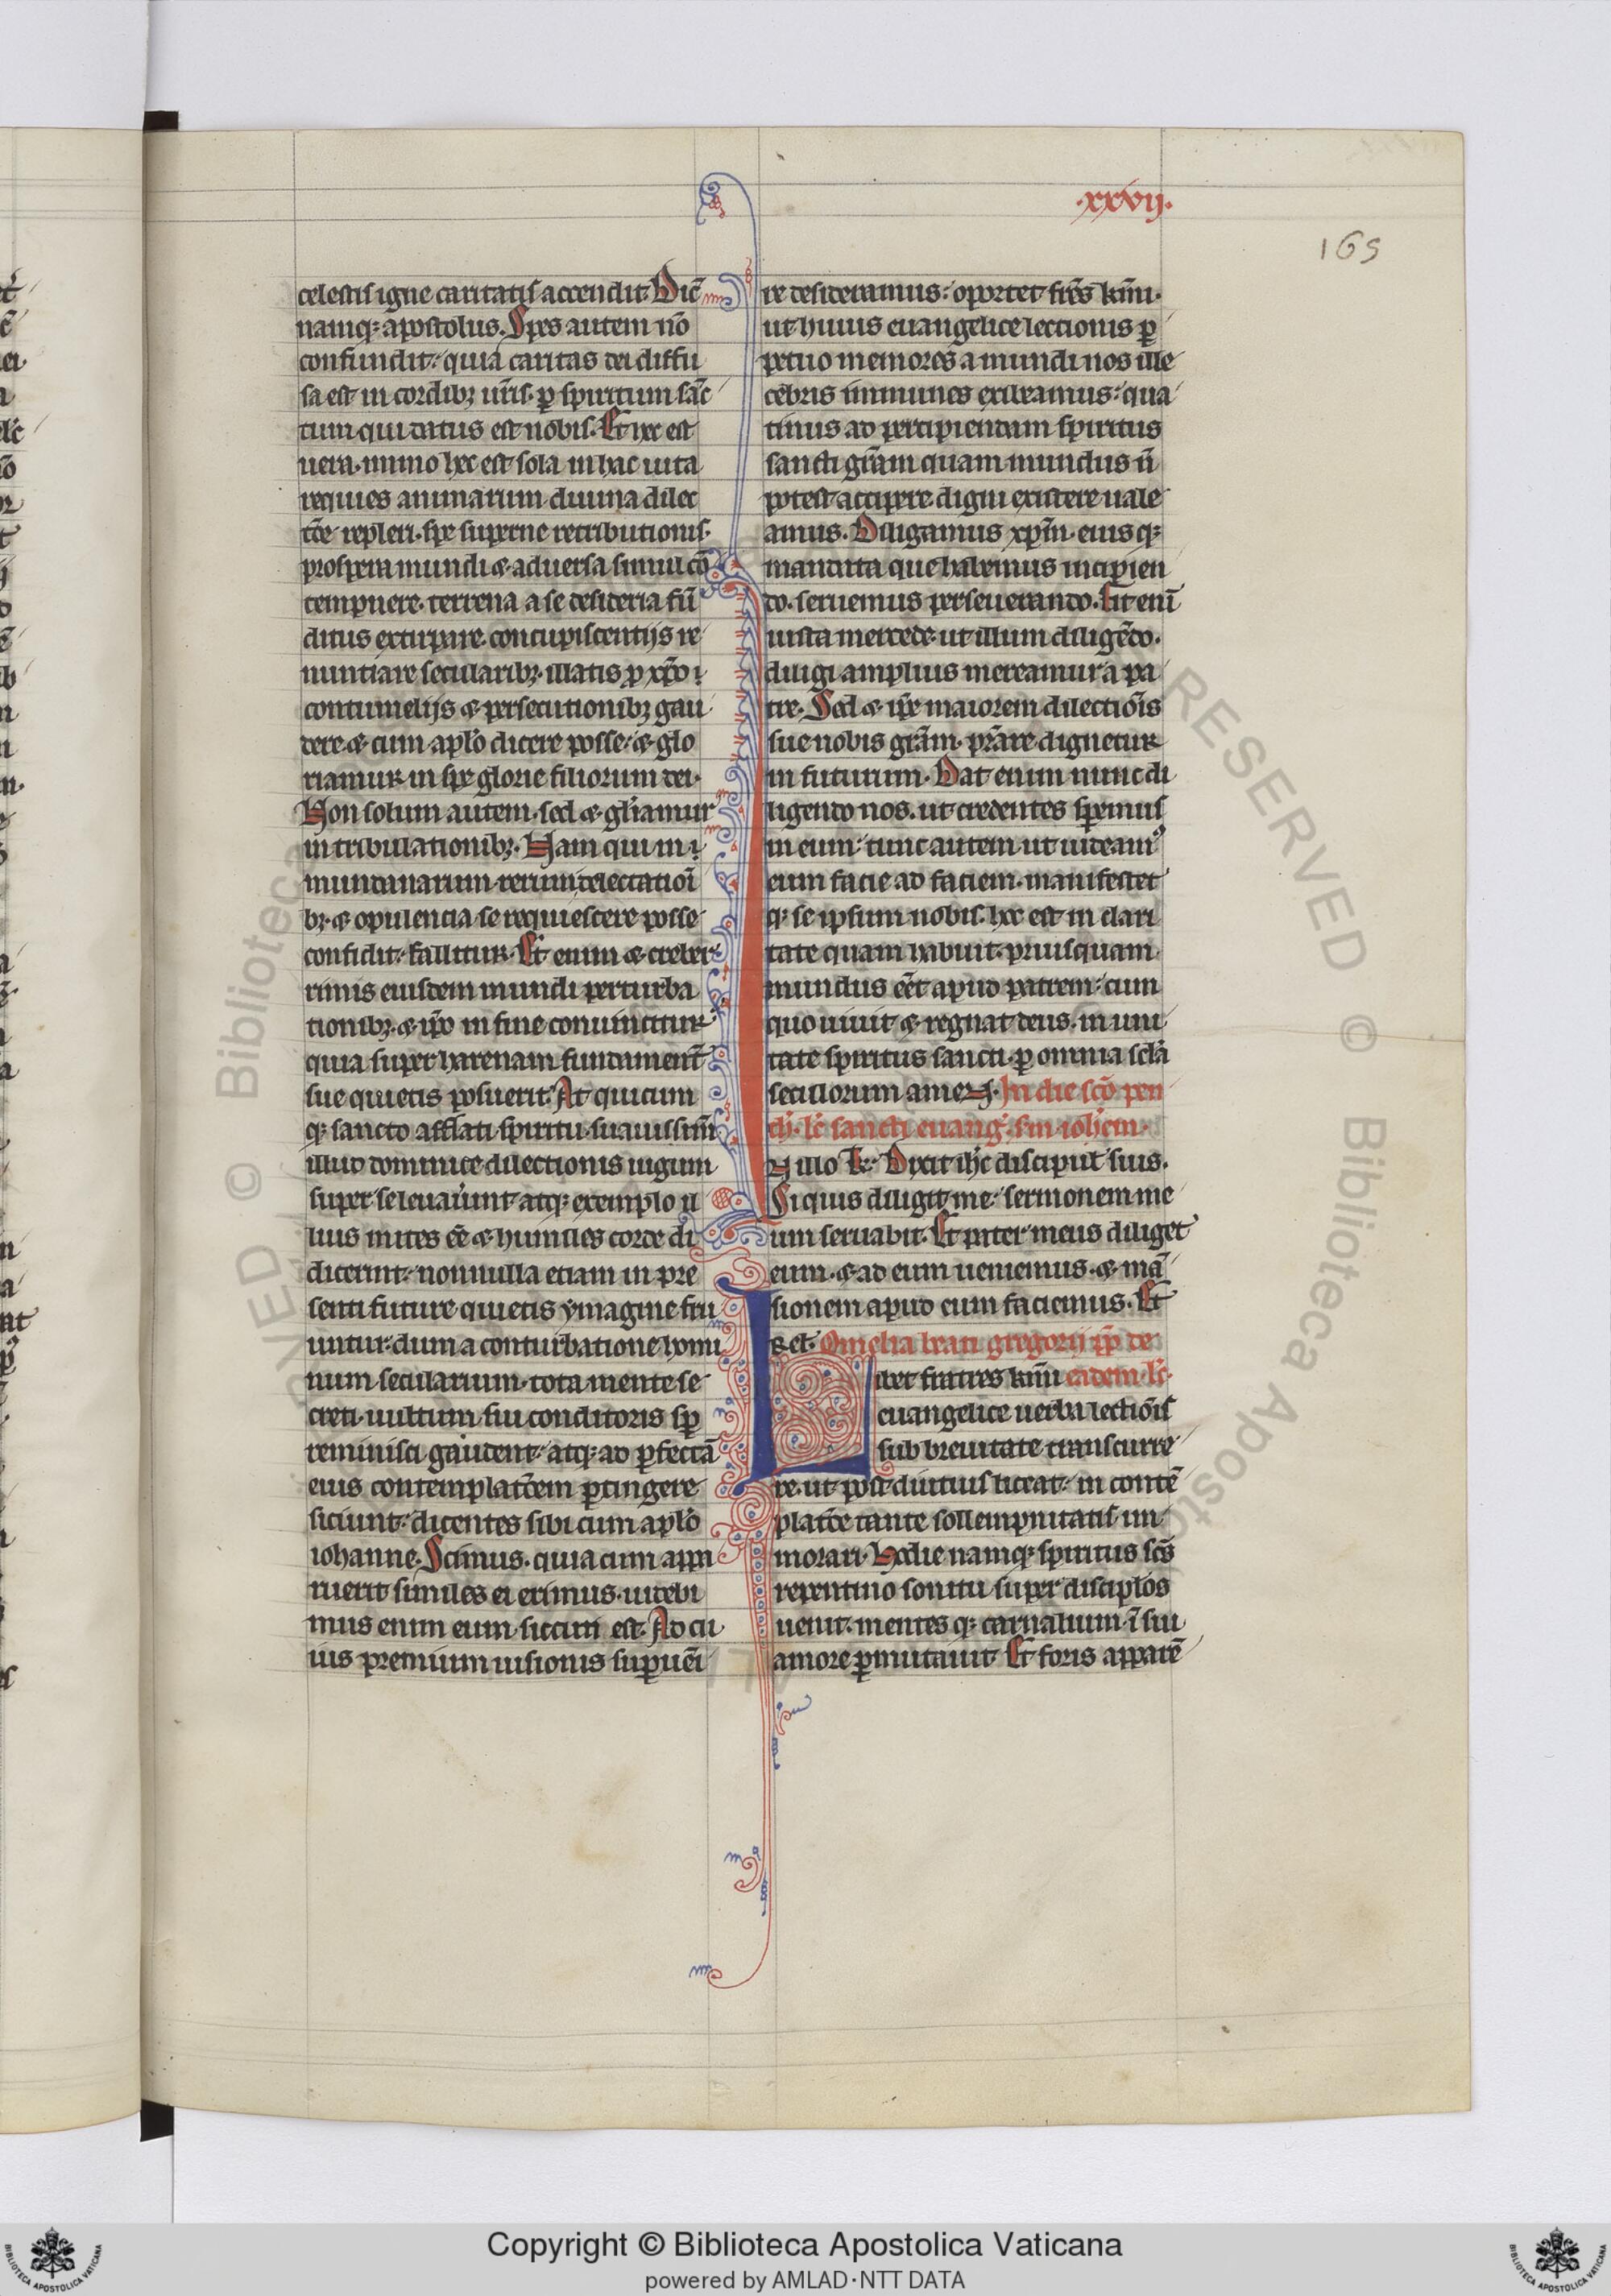 .xxvij.
165
celestis igne caritatis accendit. Dic̄
namq; apostolus. Spes autem nō
confundit: quia caritas dei diffu
sa est in cordib; nr̄is. ꝑ spiritum sāc
tum qui datus est nobis. Et hec est
uera. immo hec est sola in hac uita
requies animarum diuina dilec
tōe repleri. spe superne retributionis.
prospera mundi ⁊ aduersa simul cō
tempnere. terrena a se desideria fū
ditus extirpare. concupiscentijs re
nuntiare secularib;. illatis ꝑ xp̄o
contumelijs ⁊ persecutionib; gau
dere. ⁊ cum apl̄o dicere posse: ⁊ glo
riamur in spe glorie filiorum dei.
Non solum autem. sed ⁊ gl̄iamur
in tribulationib;. Nam qui in
mundanarum rerum delectatiōi
b; ⁊ opulencia se requiescere posse
confidit: fallitur. Et enim ⁊ creber
rimis eiusdem mundi perturba
tionib; ⁊ ip̄o in fine conuincitur
quia super harenam fundament̄
sue quietis posuerit. At quicum
q; sancto afflati spiritu. suauissim̄
illud dominice dilectionis iugum
super se leuauerunt. atq; exemplo il
lius mites eē ⁊ humiles corde di
dicerunt: nonnulla etiam in pre
senti future quietis ymagine fru
untur. dum a conturbatione homi
num secularium. tota mente se
creti. uultum sui conditoris sꝑ
reminisci gaudent. atq; ad ꝑfectā
eius contemplatōem ꝑtingere
sitiunt: dicentes sibi cum apl̄o
iohanne. Scimus. quia cum appa
ruerit similes ei erimus. uidebi
mus enim eum sicuti est. Ad cu
ius premium uisionis si ꝑuēi
re desideramus: oportet fr̄es km̄i.
ut huius euangelice lectionis ꝑ
petuo memores a mundi nos ille
cebris immunes exibeamus: qua
tinus ad percipiendam spiritus
sancti gr̄am quam mundus n̄
potest accipere. digni existere uale
amus. Diligamus xp̄m. eius q;
mandata que habemus incipien
do. seruemus perseuerando. Fit enī
iusta mercede. ut illum diligēdo.
diligi amplius mereamur a pa
tre. Sed ⁊ ip̄e maiorem dilectiōis
sue nobis gr̄am. pr̄are dignetur
in futurum. Dat enim nunc di
ligendo nos. ut credentes speremus
in eum: tunc autem ut uideam⁹
eum facie ad faciem. manifestet
q; se ipsum nobis. hec est in clari
tate quam habuit. priusquam
mundus eēt apud patrem: cum
quo uiuit ⁊ regnat deus. in uni
tate spiritus sancti. ꝑ omnia sc̄la
seculorum amen. In die scō pen
th. lc̄ sancti euanḡ. sm̄ ioh̄em.
In illo t̄. Dixit ih̄c discipul̄ suis.
Si quis diligit me: sermonem me
um seruabit. Et pater meus diliget
eum. ⁊ ad eum ueniemus. ⁊ mā
sionem apud eum faciemus. Et
rel̄. Omelia beati gregorij pp̄ de
Libet fratres km̄i eadem. lc̄.
euangelice uerba lectiōis
sub breuitate transcurre
re. ut post diutius liceat: in contē
platōe tante sollempnitatis im
morari. Hodie namq; spiritus sc̄s
repentino sonitu super discipl̄os
uenit. mentes q; carnalium. ī sui
amore ꝑmutauit. Et foris apparē
Copyright © Biblioteca Apostolica Vaticana
powered by AMLAD·NTT DATA